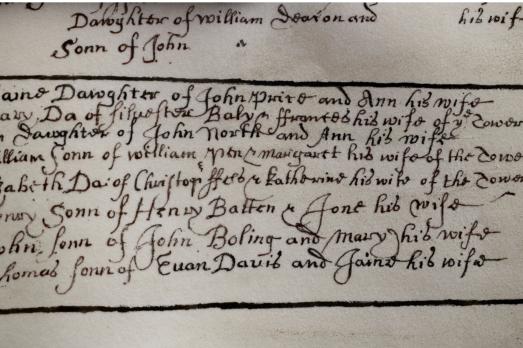 Dawghter of William Deacon and his wife
Sonn of John
aine Dawghter of John Price and Ann his wife
ary Da of Silvester Baly & ffrances his wife of ye Tower
n Dawghter of John North and Ann his wife
illiam Sonn of William Pen & Margarett his wife of the Towe
zabeth Da: of Christop & Katherine his wife of the Tower
enry Sonn of Henry Batten & Jone his wife
ohn Sonn of John Boling and Mary his wife
homas Sonn of Evan Davis and Jaine his wife